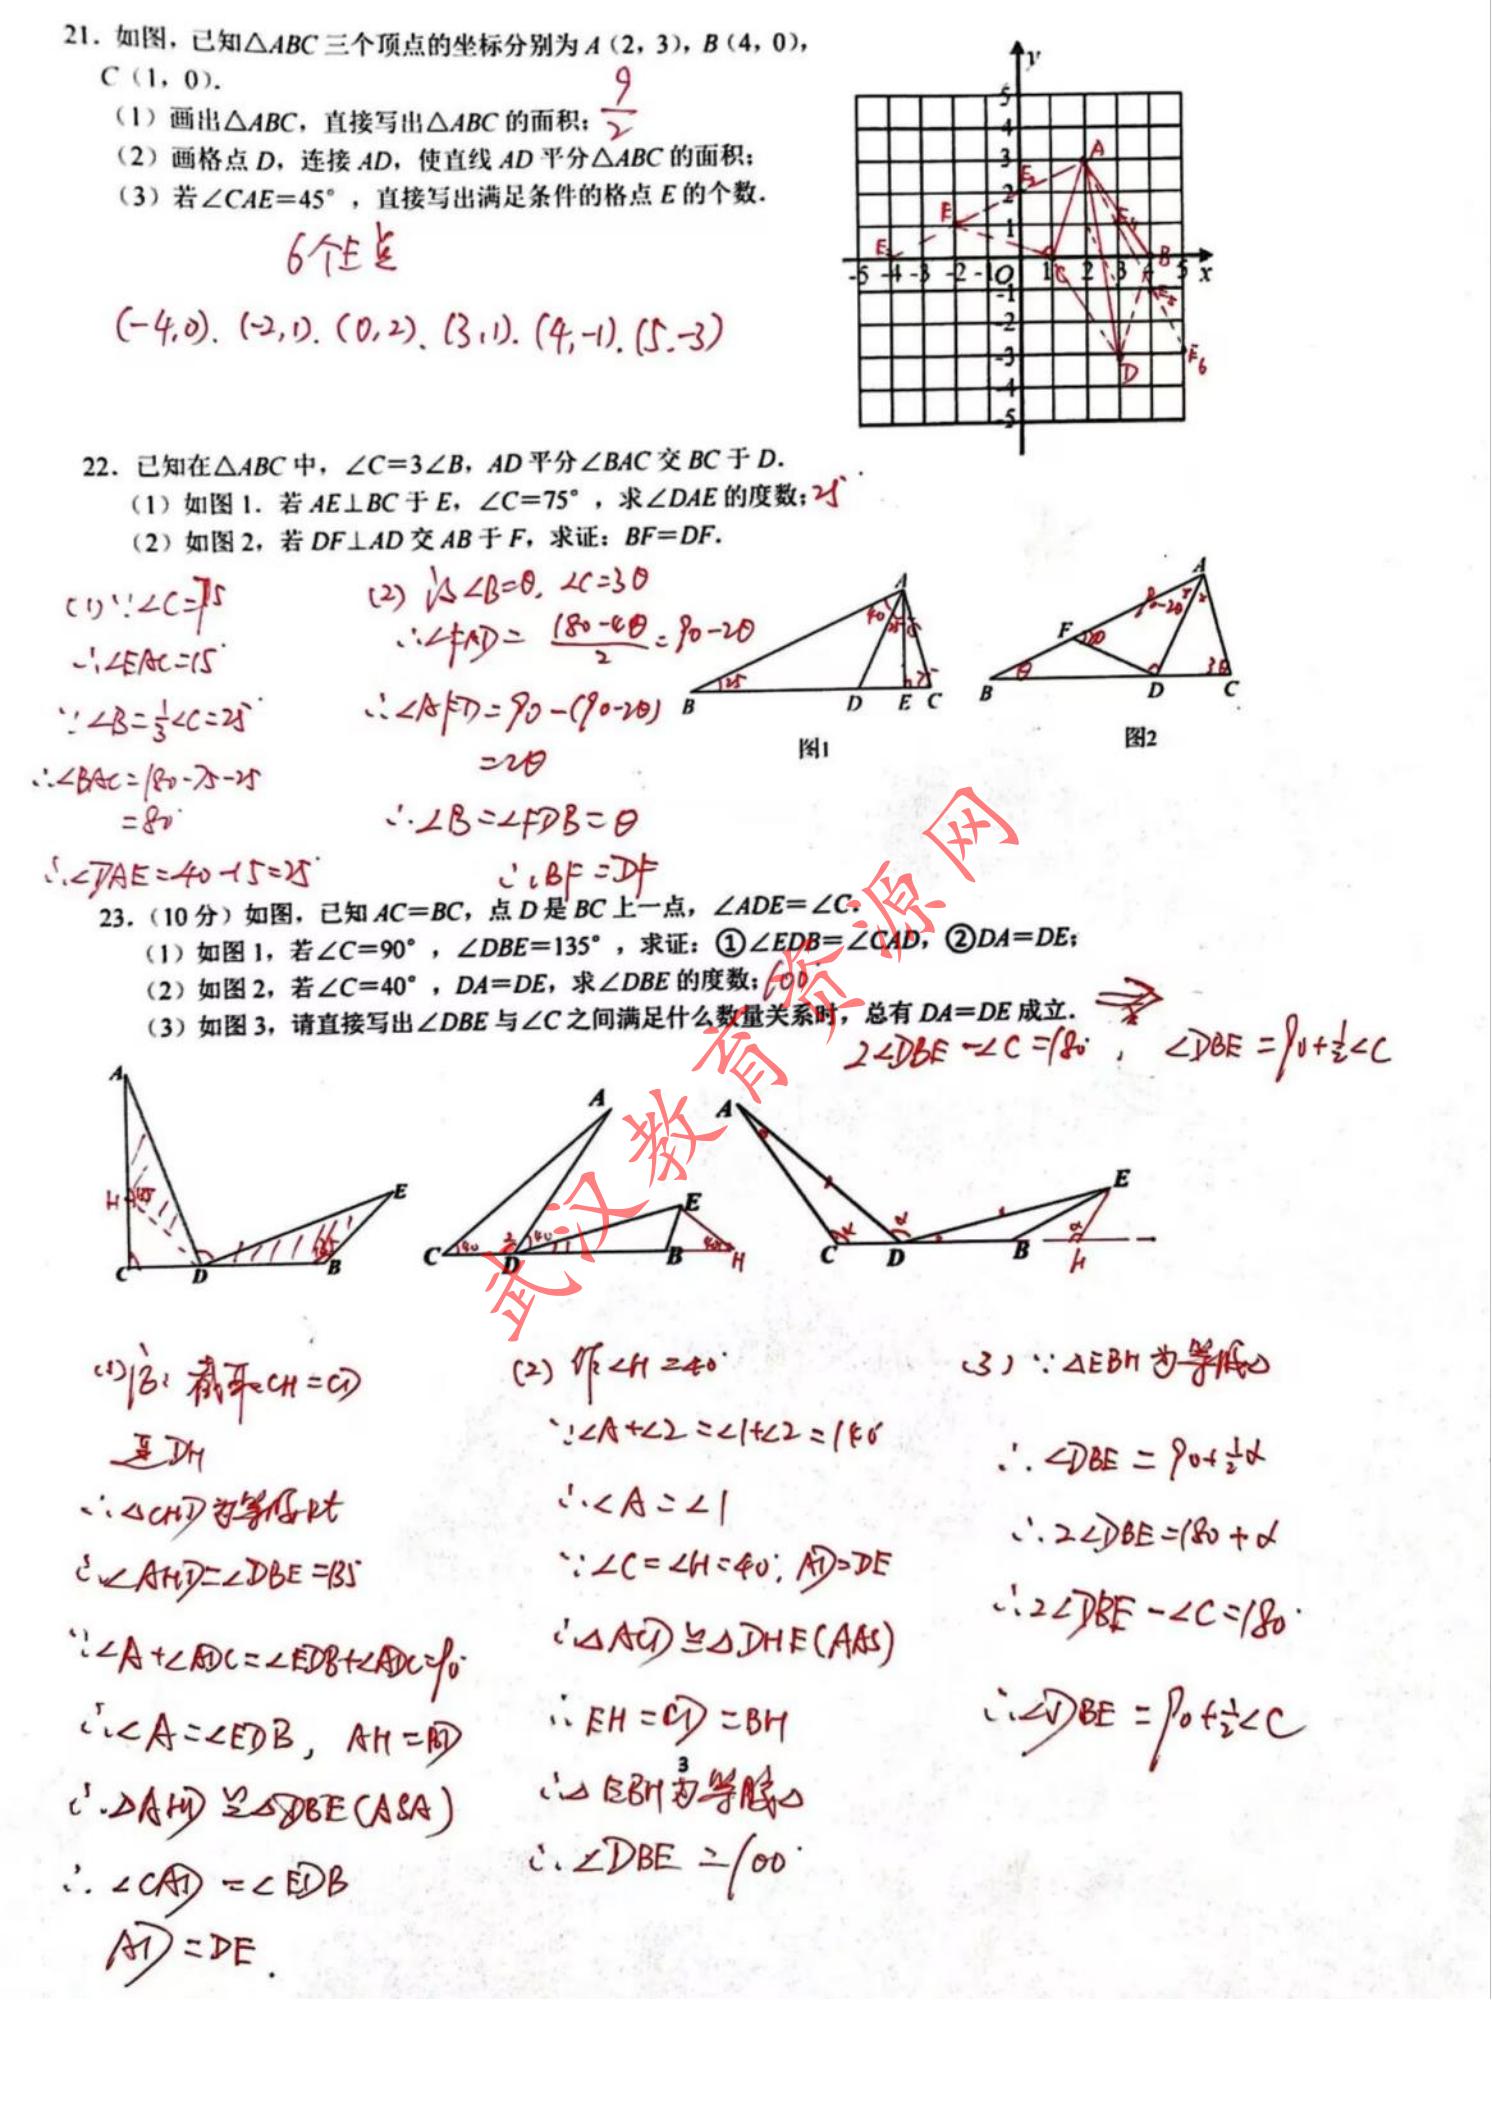 21. 如图，已知△ABC 三个顶点的坐标分别为 A（2，3），B（4，0），
C（1，0）.
（1）画出△ABC，直接写出△ABC 的面积；9/2
（2）画格点 D，连接 AD，使直线 AD 平分△ABC 的面积；
（3）若∠CAE=45°，直接写出满足条件的格点 E 的个数.
6个E点
(-4,0). (-2,1). (0,2). (3,1). (4,-1). (5,-3)
y
5
4
3
2
1
-5 -4 -3 -2 -1 O 1 2 3 4 5 x
-1
-2
-3
-4
-5
A
B
C
D
22. 已知在△ABC 中，∠C=3∠B，AD 平分∠BAC 交 BC 于 D.
（1）如图 1. 若 AE⊥BC 于 E，∠C=75°，求∠DAE 的度数；25°
（2）如图 2，若 DF⊥AD 交 AB 于 F，求证：BF=DF.
(1)∵∠C=75
∴∠EAC=15°
∵∠B=1/3∠C=25°
∴∠BAC=180-75-25
=80°
∴∠DAE=40-15=25°
(2) 设∠B=θ. ∠C=3θ
∴∠FAD=(180-4θ)/2=90-2θ
∴∠AFD=90-(90-2θ)
=2θ
∴∠B=∠FDB=θ
∴BF=DF
A
40 25 15
25 75
B D E C
图1
A
90-2θ
F 2θ
θ 3θ
B D C
图2
23.（10 分）如图，已知 AC=BC，点 D 是 BC 上一点，∠ADE=∠C.
（1）如图 1，若∠C=90°，∠DBE=135°，求证：①∠EDB=∠CAD，②DA=DE；
（2）如图 2，若∠C=40°，DA=DE，求∠DBE 的度数；100°
（3）如图 3，请直接写出∠DBE 与∠C 之间满足什么数量关系时，总有 DA=DE 成立.
2∠DBE-∠C=180°, ∠DBE=90+1/2∠C
A
H 135
E
135
C D B
A
E
40 2 40 1 40
C D B H
A
E
α α α
C D B H
(1)证: 截取CH=CD
连DH
∴△CHD为等腰Rt
∴∠AHD=∠DBE=135
∵∠A+∠ADC=∠EDB+∠ADC=90°
∴∠A=∠EDB, AH=BD
∴△AHD≌△DBE(ASA)
∴∠CAD=∠EDB
AD=DE.
(2) 作∠H=40°
∵∠A+∠2=∠1+∠2=140°
∴∠A=∠1
∵∠C=∠H=40°, AD=DE
∴△ACD≌△DHE(AAS)
∴EH=CD=BH
∴△EBH为等腰△
∴∠DBE=100°
3
(3)∵△EBH为等腰△
∴∠DBE=90+1/2α
∴2∠DBE=180+α
∴2∠DBE-∠C=180°
∴∠DBE=90+1/2∠C
武汉教育资源网